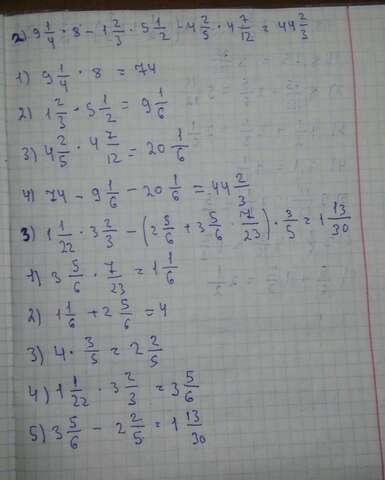 2) 9 1/4 · 8 - 1 2/3 · 5 1/2 - 4 2/5 · 4 7/12 = 44 2/3
1) 9 1/4 · 8 = 74
2) 1 2/3 · 5 1/2 = 9 1/6
3) 4 2/5 · 4 7/12 = 20 1/6
4) 74 - 9 1/6 - 20 1/6 = 44 2/3
3) 1 1/22 · 3 2/3 - (2 5/6 + 3 5/6 · 7/23) · 3/5 = 1 13/30
1) 3 5/6 · 7/23 = 1 1/6
2) 1 1/6 + 2 5/6 = 4
3) 4 · 3/5 = 2 2/5
4) 1 1/22 · 3 2/3 = 3 5/6
5) 3 5/6 - 2 2/5 = 1 13/30